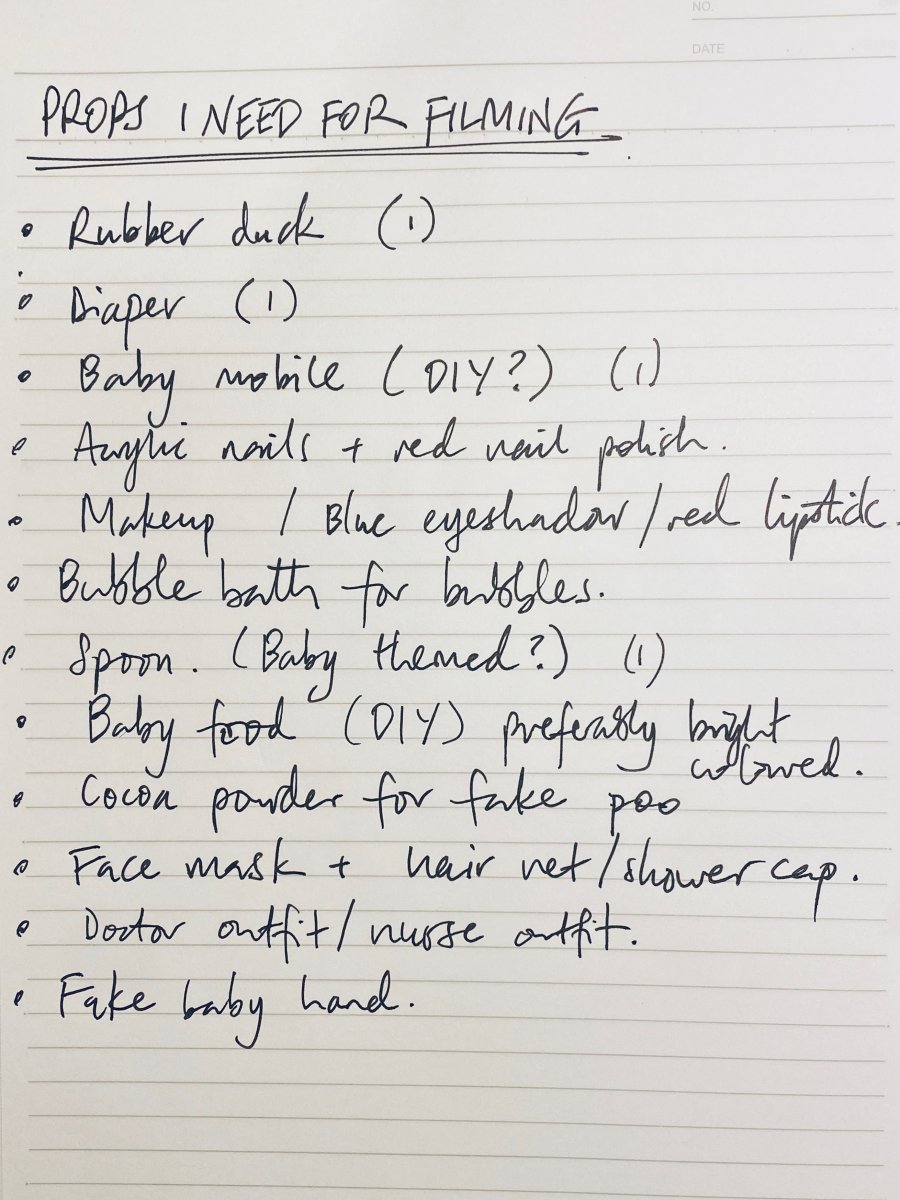 NO.
DATE
PROPS I NEED FOR FILMING
• Rubber duck (1)
• Diaper (1)
• Baby mobile (DIY?) (1)
• Acrylic nails + red nail polish.
• Makeup / Blue eyeshadow / red lipstick.
• Bubble bath for bubbles.
• Spoon. (Baby themed?) (1)
• Baby food (DIY) preferably bright
coloured.
• Cocoa powder for fake poo
• Face mask + hair net / shower cap.
• Doctor outfit / nurse outfit.
• Fake baby hand.